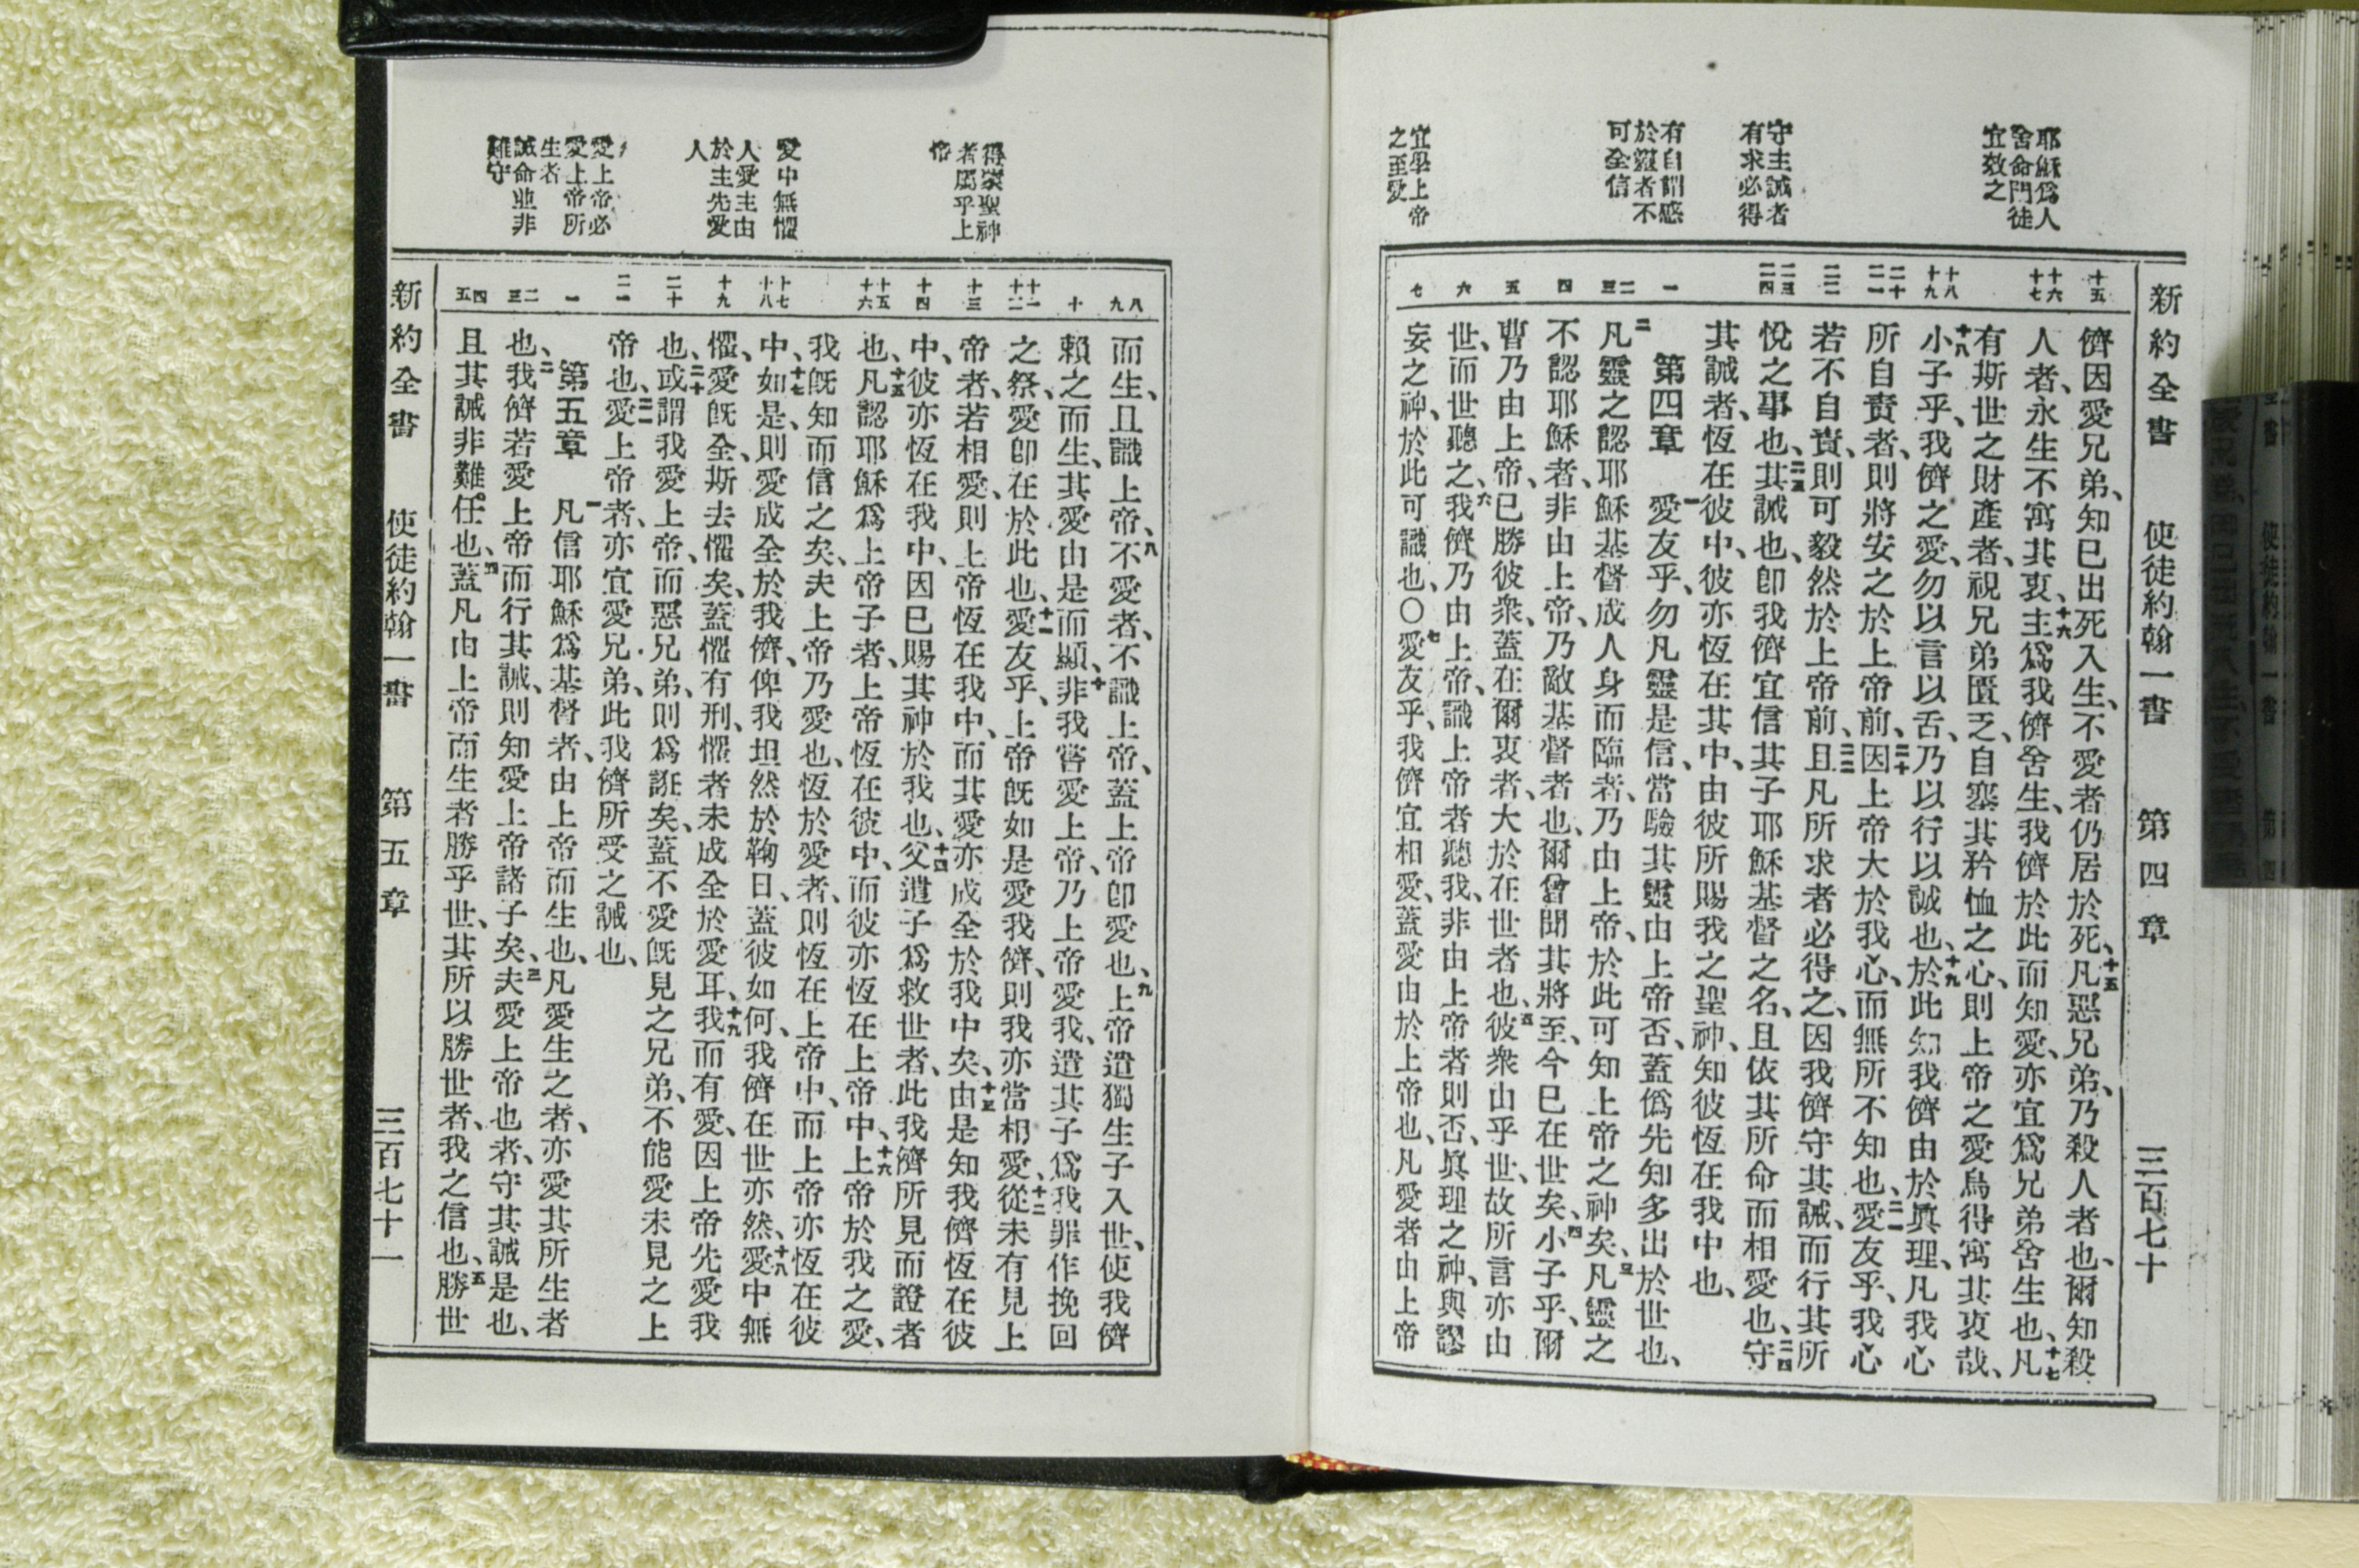 耶穌爲人
舍命門徒
宜效之
守主誡者
有求必得
有自謂感
於靈者不
可全信
宜學上帝
之至愛
新約全書 使徒約翰一書 第四章 三百七十
十五
十六
十七
十八
十九
二十
二一
二二
二三
二四
一
二
三
四
五
六
七
儕因愛兄弟、知已出死入生、不愛者仍居於死、十五凡惡兄弟、乃殺人者也、爾知殺
人者、永生不寓其衷、十六主爲我儕舍生、我儕於此而知愛、亦宜爲兄弟舍生也、十七凡
有斯世之財產者、視兄弟匱乏、自塞其矜恤之心、則上帝之愛烏得寓其衷哉、
十八小子乎、我儕之愛、勿以言以舌、乃以行以誠也、十九於此知我儕由於眞理、凡我心
所自責者、則將安之於上帝前、二十因上帝大於我心、而無所不知也、二一愛友乎、我心
若不自責、則可毅然於上帝前、二二且凡所求者必得之、因我儕守其誡、而行其所
悅之事也、二三其誡也、卽我儕宜信其子耶穌基督之名、且依其所命而相愛也、二四守
其誡者、恆在彼中、彼亦恆在其中、由彼所賜我之聖神、知彼恆在我中也、
第四章 一愛友乎、勿凡靈是信、當驗其靈由上帝否、蓋僞先知多出於世也、
二凡靈之認耶穌基督成人身而臨者、乃由上帝、於此可知上帝之神矣、三凡靈之
不認耶穌者、非由上帝、乃敵基督者也、爾曾聞其將至、今已在世矣、四小子乎、爾
曹乃由上帝、已勝彼衆、蓋在爾衷者、大於在世者也、五彼衆由乎世、故所言亦由
世、而世聽之、六我儕乃由上帝、識上帝者聽我、非由上帝者則否、眞理之神、與謬
妄之神、於此可識也、〇七愛友乎、我儕宜相愛、蓋愛由於上帝也、凡愛者由上帝
得蒙聖神
者屬乎上
帝
愛中無懼
人愛主由
於主先愛
人
愛上帝必
愛上帝所
生者
誡命並非
難守
八
九
十
十一
十二
十三
十四
十五
十六
十七
十八
十九
二十
二一
一
二
三
四
五
而生、且識上帝、八不愛者、不識上帝、蓋上帝卽愛也、九上帝遣獨生子入世、使我儕
賴之而生、其愛由是而顯、十非我嘗愛上帝、乃上帝愛我、遣其子爲我罪作挽回
之祭、愛卽在於此也、十一愛友乎、上帝旣如是愛我儕、則我亦當相愛、十二從未有見上
帝者、若相愛、則上帝恆在我中、而其愛亦成全於我中矣、十三由是知我儕恆在彼
中、彼亦恆在我中、因已賜其神於我也、十四父遣子爲救世者、此我儕所見而證者
也、十五凡認耶穌爲上帝子者、上帝恆在彼中、而彼亦恆在上帝中、十六上帝於我之愛、
我旣知而信之矣、夫上帝乃愛也、恆於愛者、則恆在上帝中、而上帝亦恆在彼
中、十七如是、則愛成全於我儕、俾我坦然於鞫日、蓋彼如何、我儕在世亦然、十八愛中無
懼、愛旣全、斯去懼矣、蓋懼有刑、懼者未成全於愛耳、十九我而有愛、因上帝先愛我
也、二十或謂我愛上帝、而惡兄弟、則爲誑矣、蓋不愛旣見之兄弟、不能愛未見之上
帝也、二一愛上帝者、亦宜愛兄弟、此我儕所受之誡也、
第五章 一凡信耶穌爲基督者、由上帝而生也、凡愛生之者、亦愛其所生者
也、二我儕若愛上帝而行其誡、則知愛上帝諸子矣、三夫愛上帝也者、守其誡是也、
且其誡非難任也、四蓋凡由上帝而生者勝乎世、其所以勝世者、我之信也、五勝世
新約全書 使徒約翰一書 第五章 三百七十一